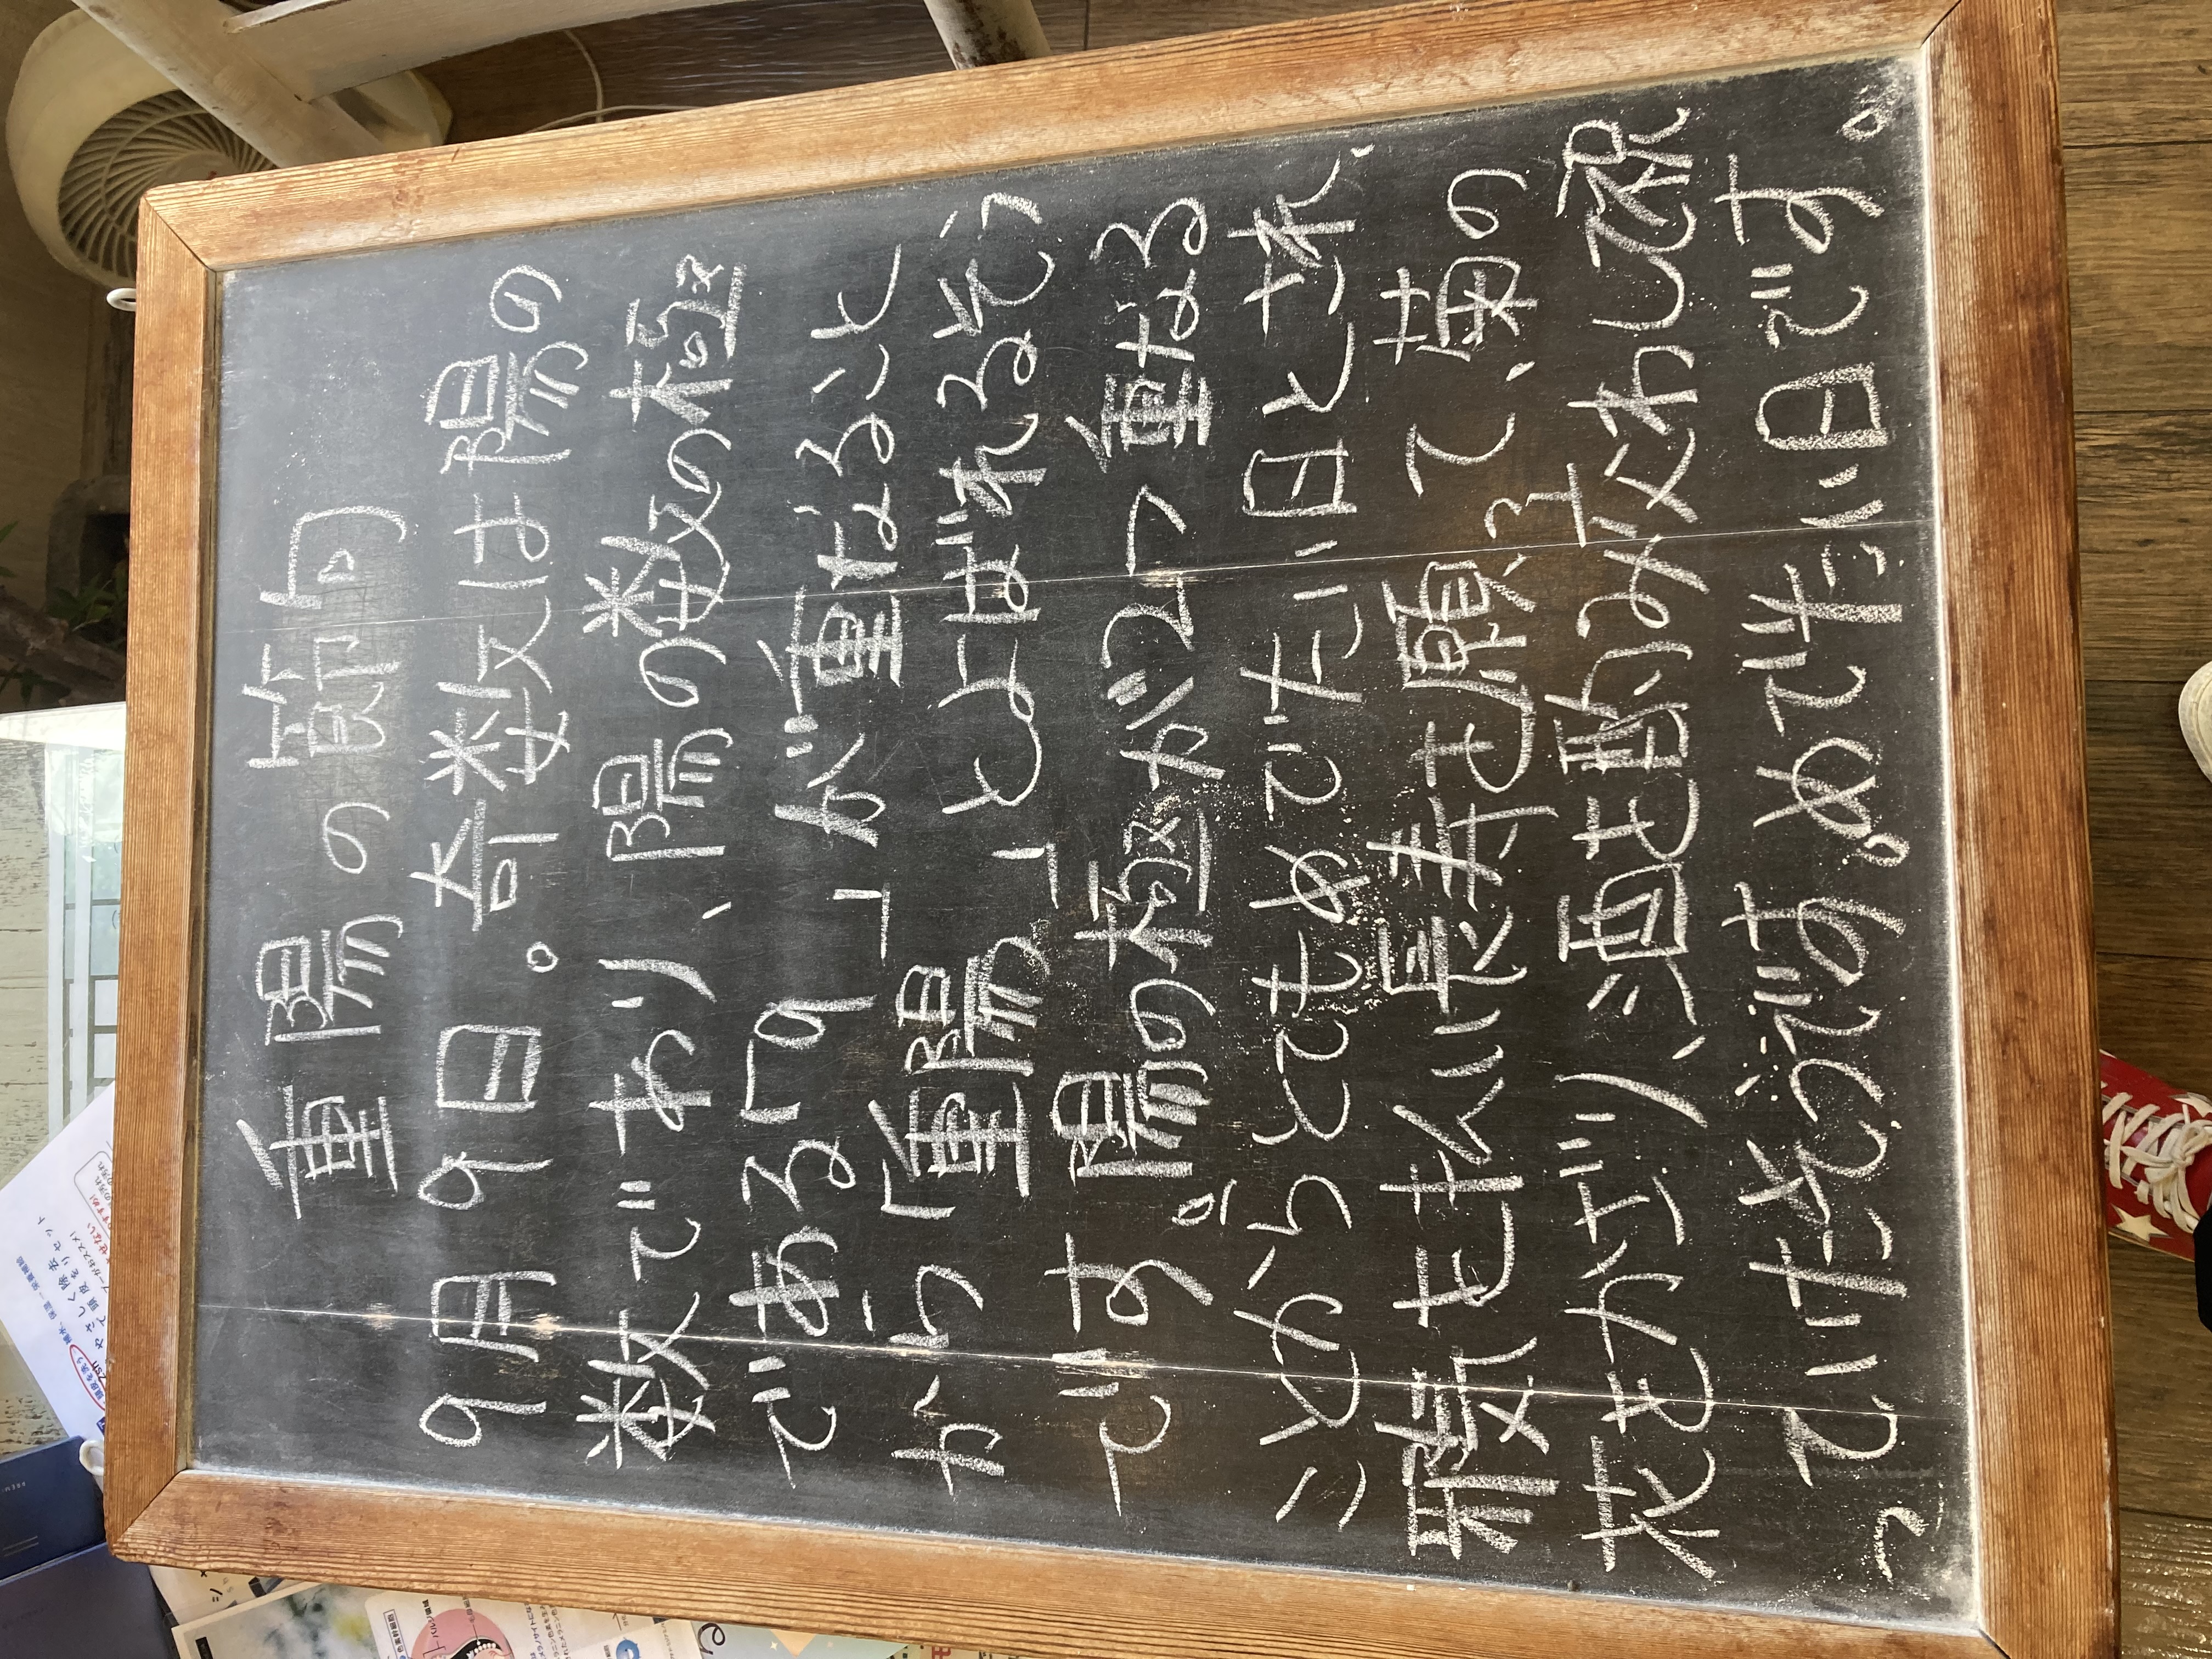 重陽の節句
9月9日。奇数は陽の
数であり、陽の数の極
である「9」が重なること
から「重陽」とよばれるそう
です。陽の極が2つ重なる
ことからとてもめでたい日とされ、
邪気を払い長寿を願って、菊の
花をかざり、酒を酌み交わし祝
っていたそうです。めでたい日です。
やさしく除去
頭皮をリセット